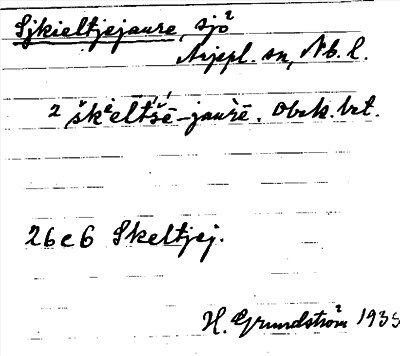 Sjkieltjejaure, sjö
Arjepl. sn, Nb. l.
2 škieltšē-jaurē. Obek. bet.
26c6 Skeltjej.
H. Grundström 1935